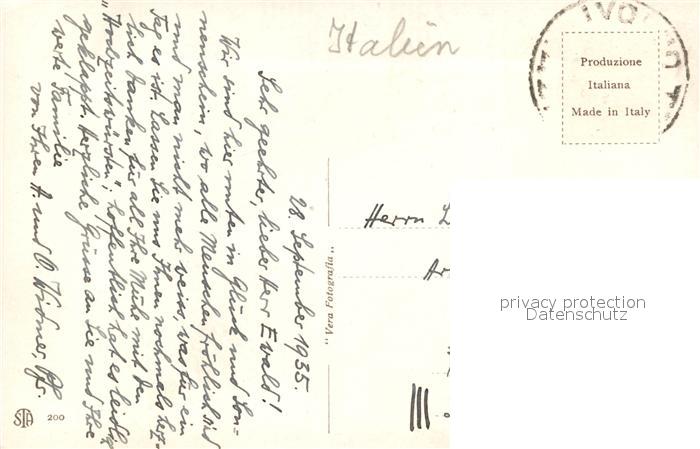 Italien
28. September 1935.
Sehr geehrter, lieber Herr Ewald!
Wir sind hier unten in Glück und Son-
nenschein, wo alle Menschen fröhlich sind
und man nicht mehr weiss, was für ein
Tag es ist. Lassen Sie uns Ihnen nochmals herz-
lich danken für all Ihre Mühe mit den
"Hochzeitswürsten"; hoffentlich hat es leidlich
geklappt. Herzliche Grüsse an Sie und Ihre
werte Familie
von Ihren A. und O. Widmer,
STA 200
"Vera Fotografia"
Produzione
Italiana
Made in Italy
Herrn
III
privacy protection
Datenschutz